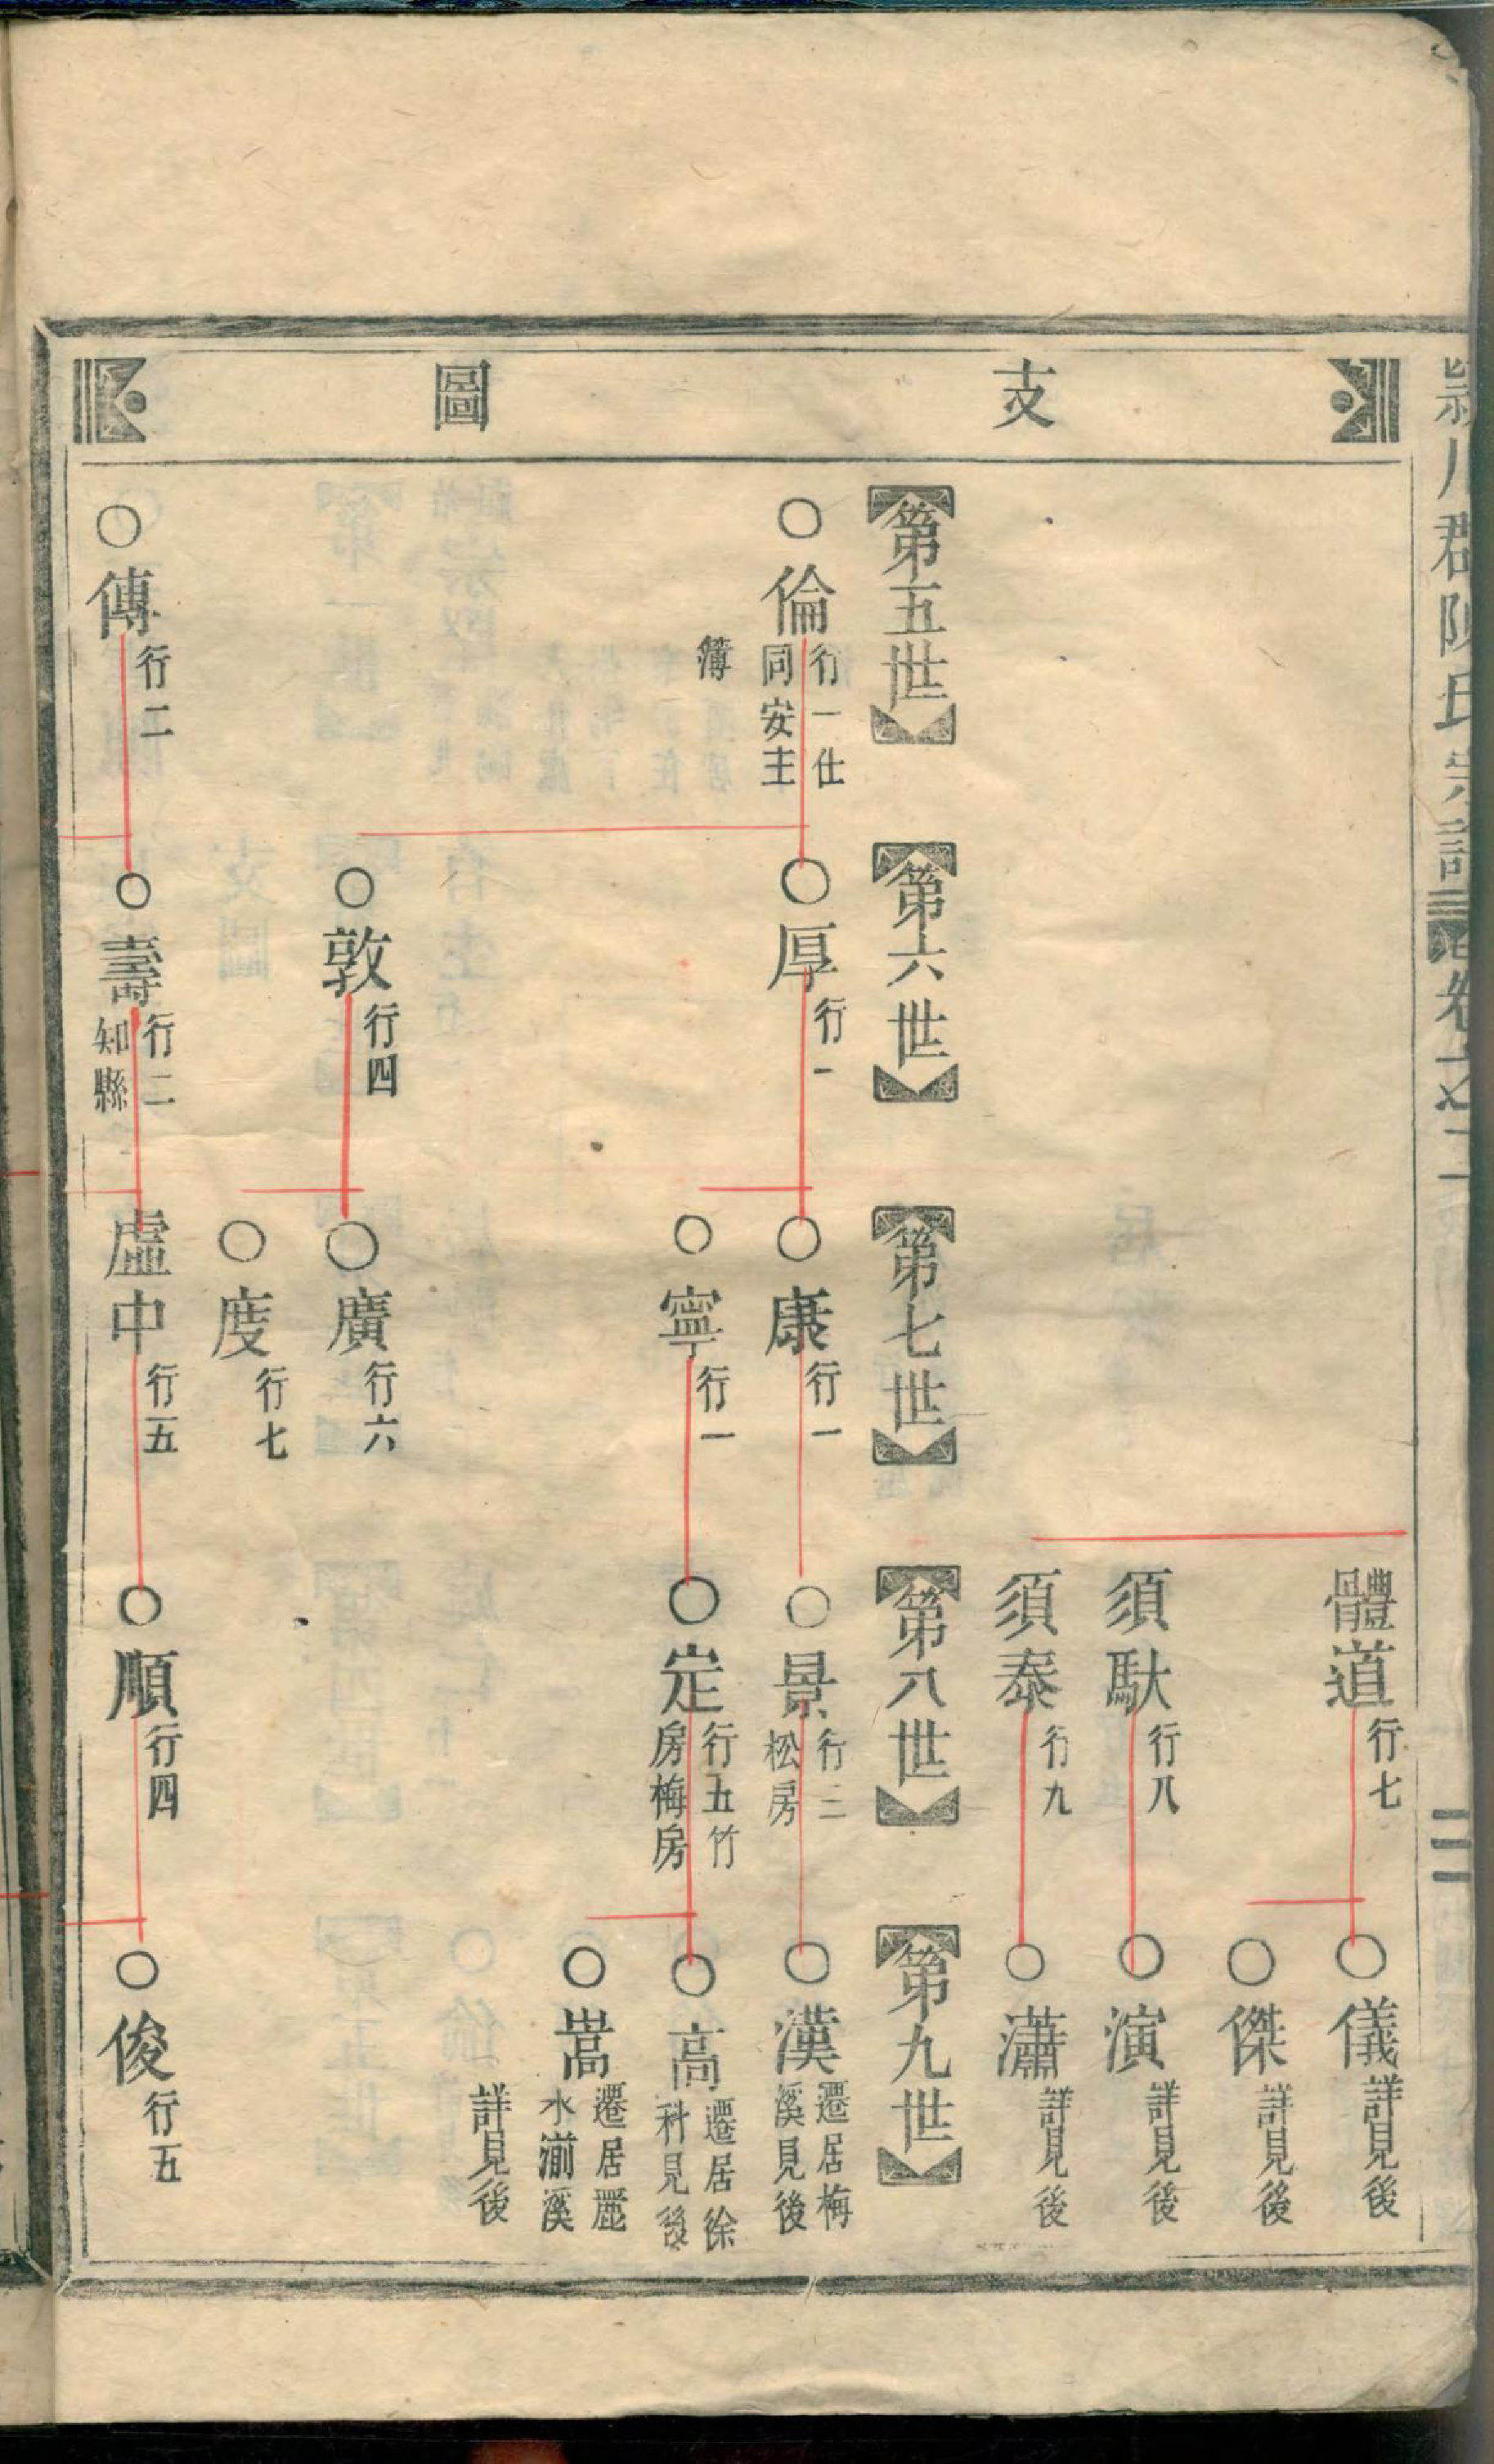 潁川郡陳氏宗譜
卷之二
支圖
體道 行七
儀 詳見後
傑 詳見後
須馱 行八
演 詳見後
須泰 行九
瀟 詳見後
第五世
第六世
第七世
第八世
第九世
倫 行一仕
同安主
簿
厚 行一
康 行一
景 行二
松房
漢 遷居梅
溪見後
寧 行一
定 行五竹
房梅房
高 遷居徐
科見後
嵩 遷居麗
水湖溪
詳見後
敦 行四
廣 行六
度 行七
傳 行二
壽 行二
知縣
虛中 行五
順 行四
俊 行五